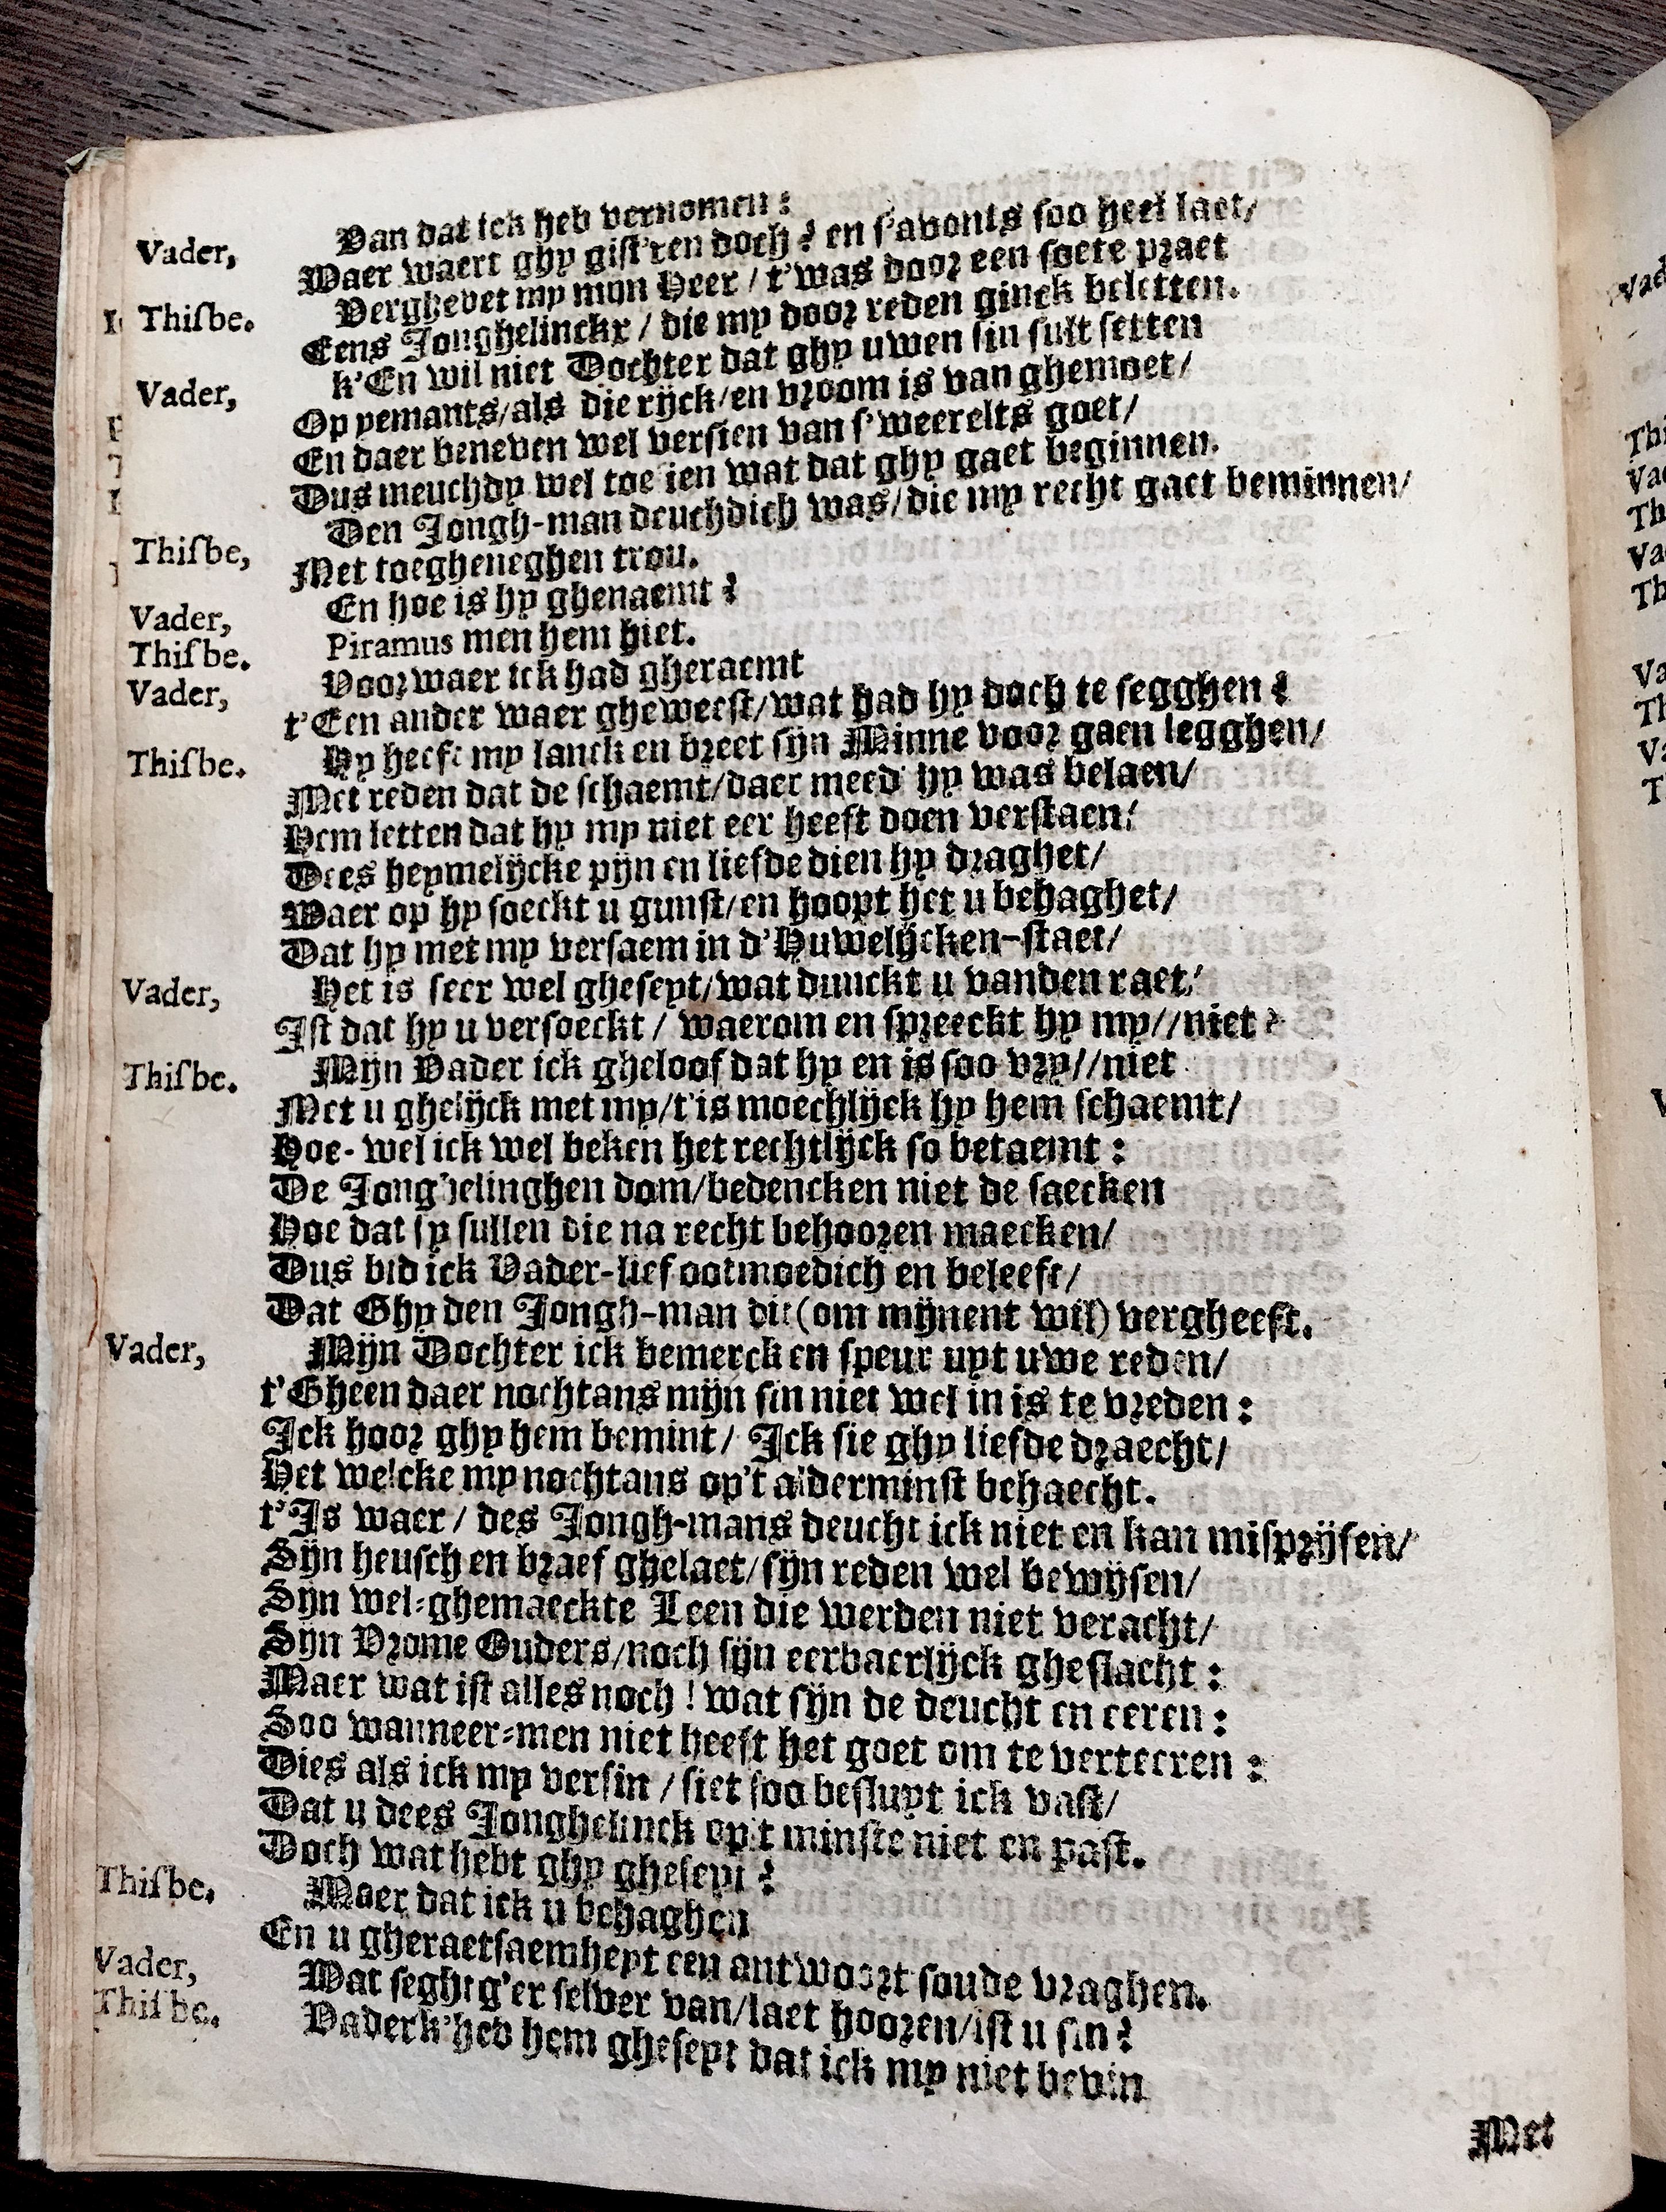 Van dat ick heb vernomen:
Vader, Waer waert ghy gist'ren doch? en s'avonts soo heel laet/
Thisbe. Verghevet my mijn Heer / t'was door een soete praet
Eens Jonghelinckx / die my door reden ginck beletten.
Vader, k'En wil niet Dochter dat ghy uwen sin sult setten
Op yemants/als die rijck/en vroom is van ghemoet/
En daer beneven wel versien van s'weerelts goet/
Dus meuchdy wel toe sien wat dat ghy gaet beginnen.
Thisbe, Den Jongh-man deuchdich was/die my recht gaet beminnen/
Met toegheneghen trou.
Vader, En hoe is hy ghenaemt?
Thisbe. Piramus men hem hiet.
Vader, Voorwaer ick had gheraemt
t'Een ander waer gheweest/wat had hy doch te segghen?
Thisbe. Hy heeft my lanck en breet sijn Minne voor gaen legghen/
Met reden dat de schaemt/daer meed' hy was belaen/
Hem letten dat hy my niet eer heeft doen verstaen/
Dees heymelijcke pijn en liefde dien hy draghet/
Waer op hy soeckt u gunst/en hoopt het u behaghet/
Dat hy met my versaem in d'Huwelijcken-staet/
Vader, Het is seer wel gheseyt/wat dunckt u vanden raet/
Ist dat hy u versoeckt / waerom en spreeckt hy my//niet?
Thisbe. Mijn Vader ick gheloof dat hy en is soo vry//niet
Met u ghelijck met my/t'is moechlijck hy hem schaemt/
Hoe-wel ick wel beken het rechtlijck so betaemt:
De Jonghelinghen dom/bedencken niet de saecken
Hoe dat sy sullen die na recht behooren maecken/
Dus bid ick Vader-lief ootmoedich en beleeft/
Dat Ghy den Jongh-man dit (om mijnent wil) vergheeft.
Vader, Mijn Dochter ick bemerck en speur uyt uwe reden/
t'Gheen daer nochtans mijn sin niet wel in is te vreden:
Ick hoor ghy hem bemint/ Ick sie ghy liefde draecht/
Het welcke my nochtans op't alderminst behaecht.
t'Is waer / des Jongh-mans deucht ick niet en kan misprijsen/
Sijn heusch en braef ghelaet/sijn reden wel bewijsen/
Sijn wel-ghemaeckte Leen die werden niet veracht/
Sijn Vrome Ouders/noch sijn eerbaerlijck gheslacht:
Maer wat ist alles noch! wat sijn de deucht en eeren:
Soo wanneer-men niet heeft het goet om te verteeren:
Dies als ick my versin / siet soo besluyt ick vast/
Dat u dees Jonghelinck op't minste niet en past.
Doch wat hebt ghy gheseyt?
Thisbe. Maer dat ick u behaghen
En u gheraetsaemheyt een antwoort soude vraghen.
Vader, Wat seght g'er selver van/laet hooren/ist u sin?
Thisbe. Vader k'heb hem gheseyt dat ick my niet bevin
Met